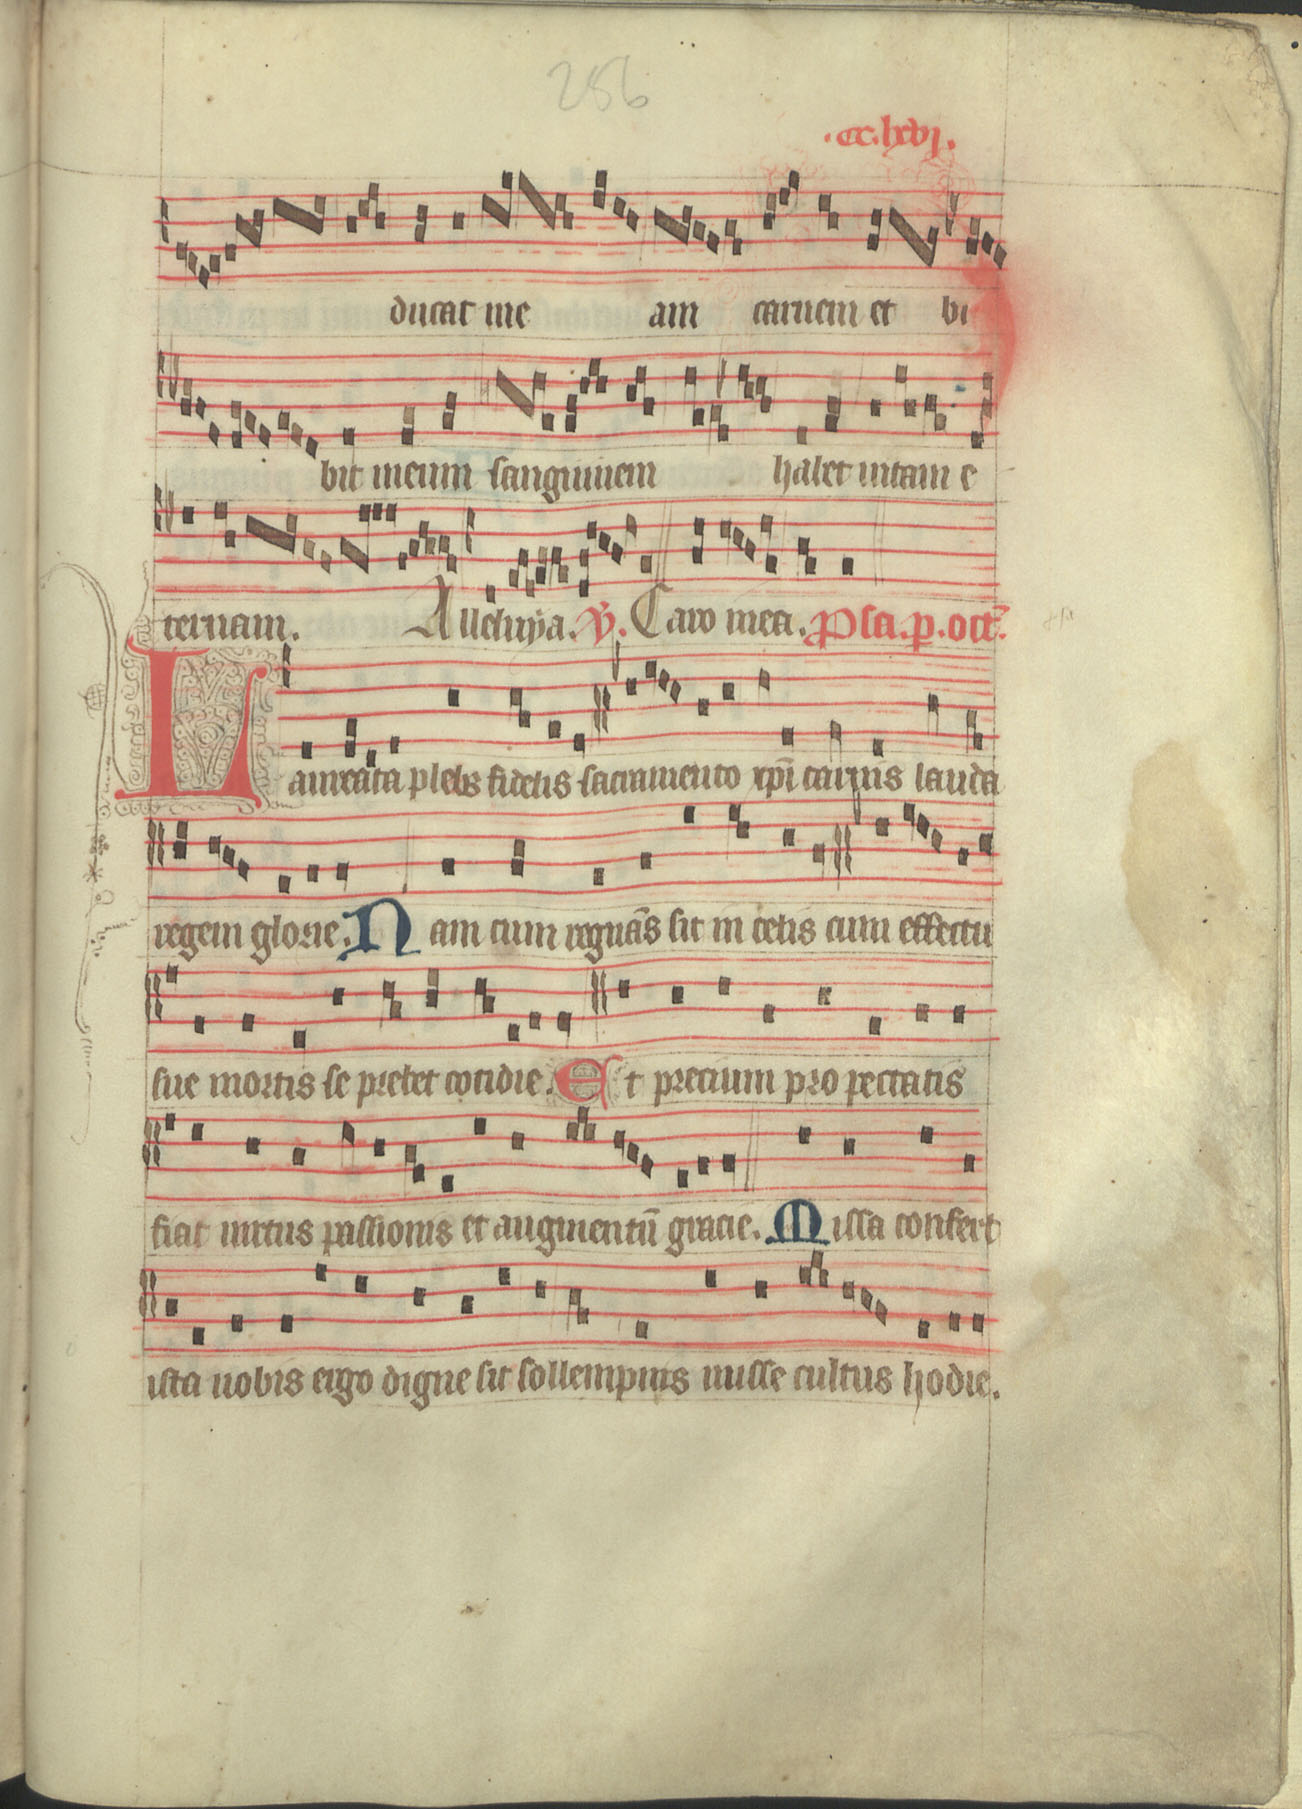 256
.cc.lxvj.
ducat me am carnem et bi
bit meum sanguinem habet uitam e
ternam. Alleluya. V. Caro mea. Psa. p. oct.
Laureata plebs fidelis sacramento xpi carnis lauda
regem glorie. Nam cum regnãs sit in celis cum effectu
sue mortis se prebet cotidie. Et precium pro peccatis
fiat uirtus passionis et augmentũ gracie. Missa confert
ista nobis ergo digne sit sollempnis misse cultus hodie.